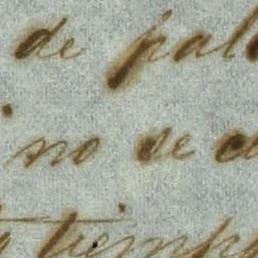 de pala
ino de ca
tiempo